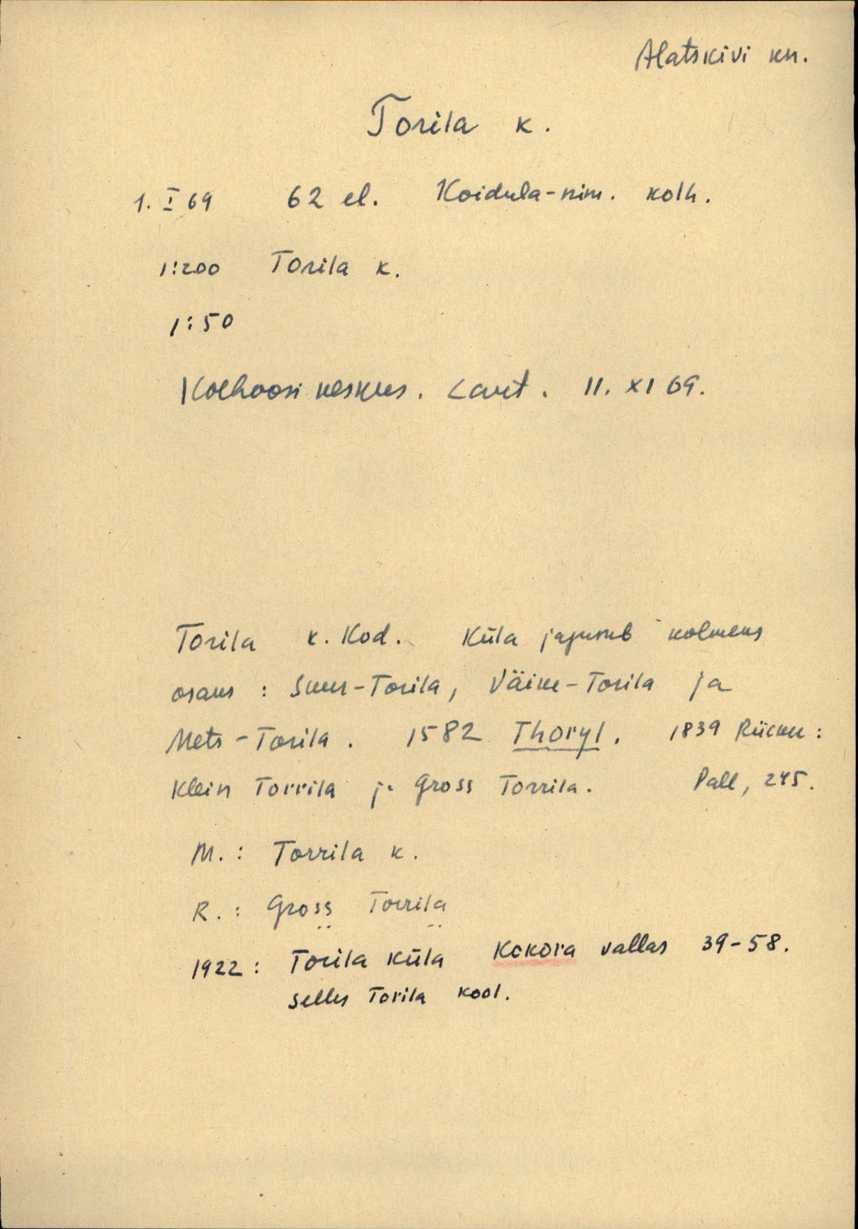 Alatskivi kn.
Torila k.
1. I 69 62 el. Koidula-nim. kolh.
1:200 Torila k.
1:50
Kolhoosi keskus. Laut. 11. XI 69.
Torila k. Kod. Küla jaguneb kolmeks
osaks : Suur-Torila, Väike-Torila ja
Mets-Torila. 1582 Thoryl. 1839 Rücker :
Klein Torrila ja Gross Torrila. Pall, 245.
M. : Torrila k.
R. : Gross Torrila
1922 : Torila küla Kokora vallas 39-58.
Selles Torila kool.